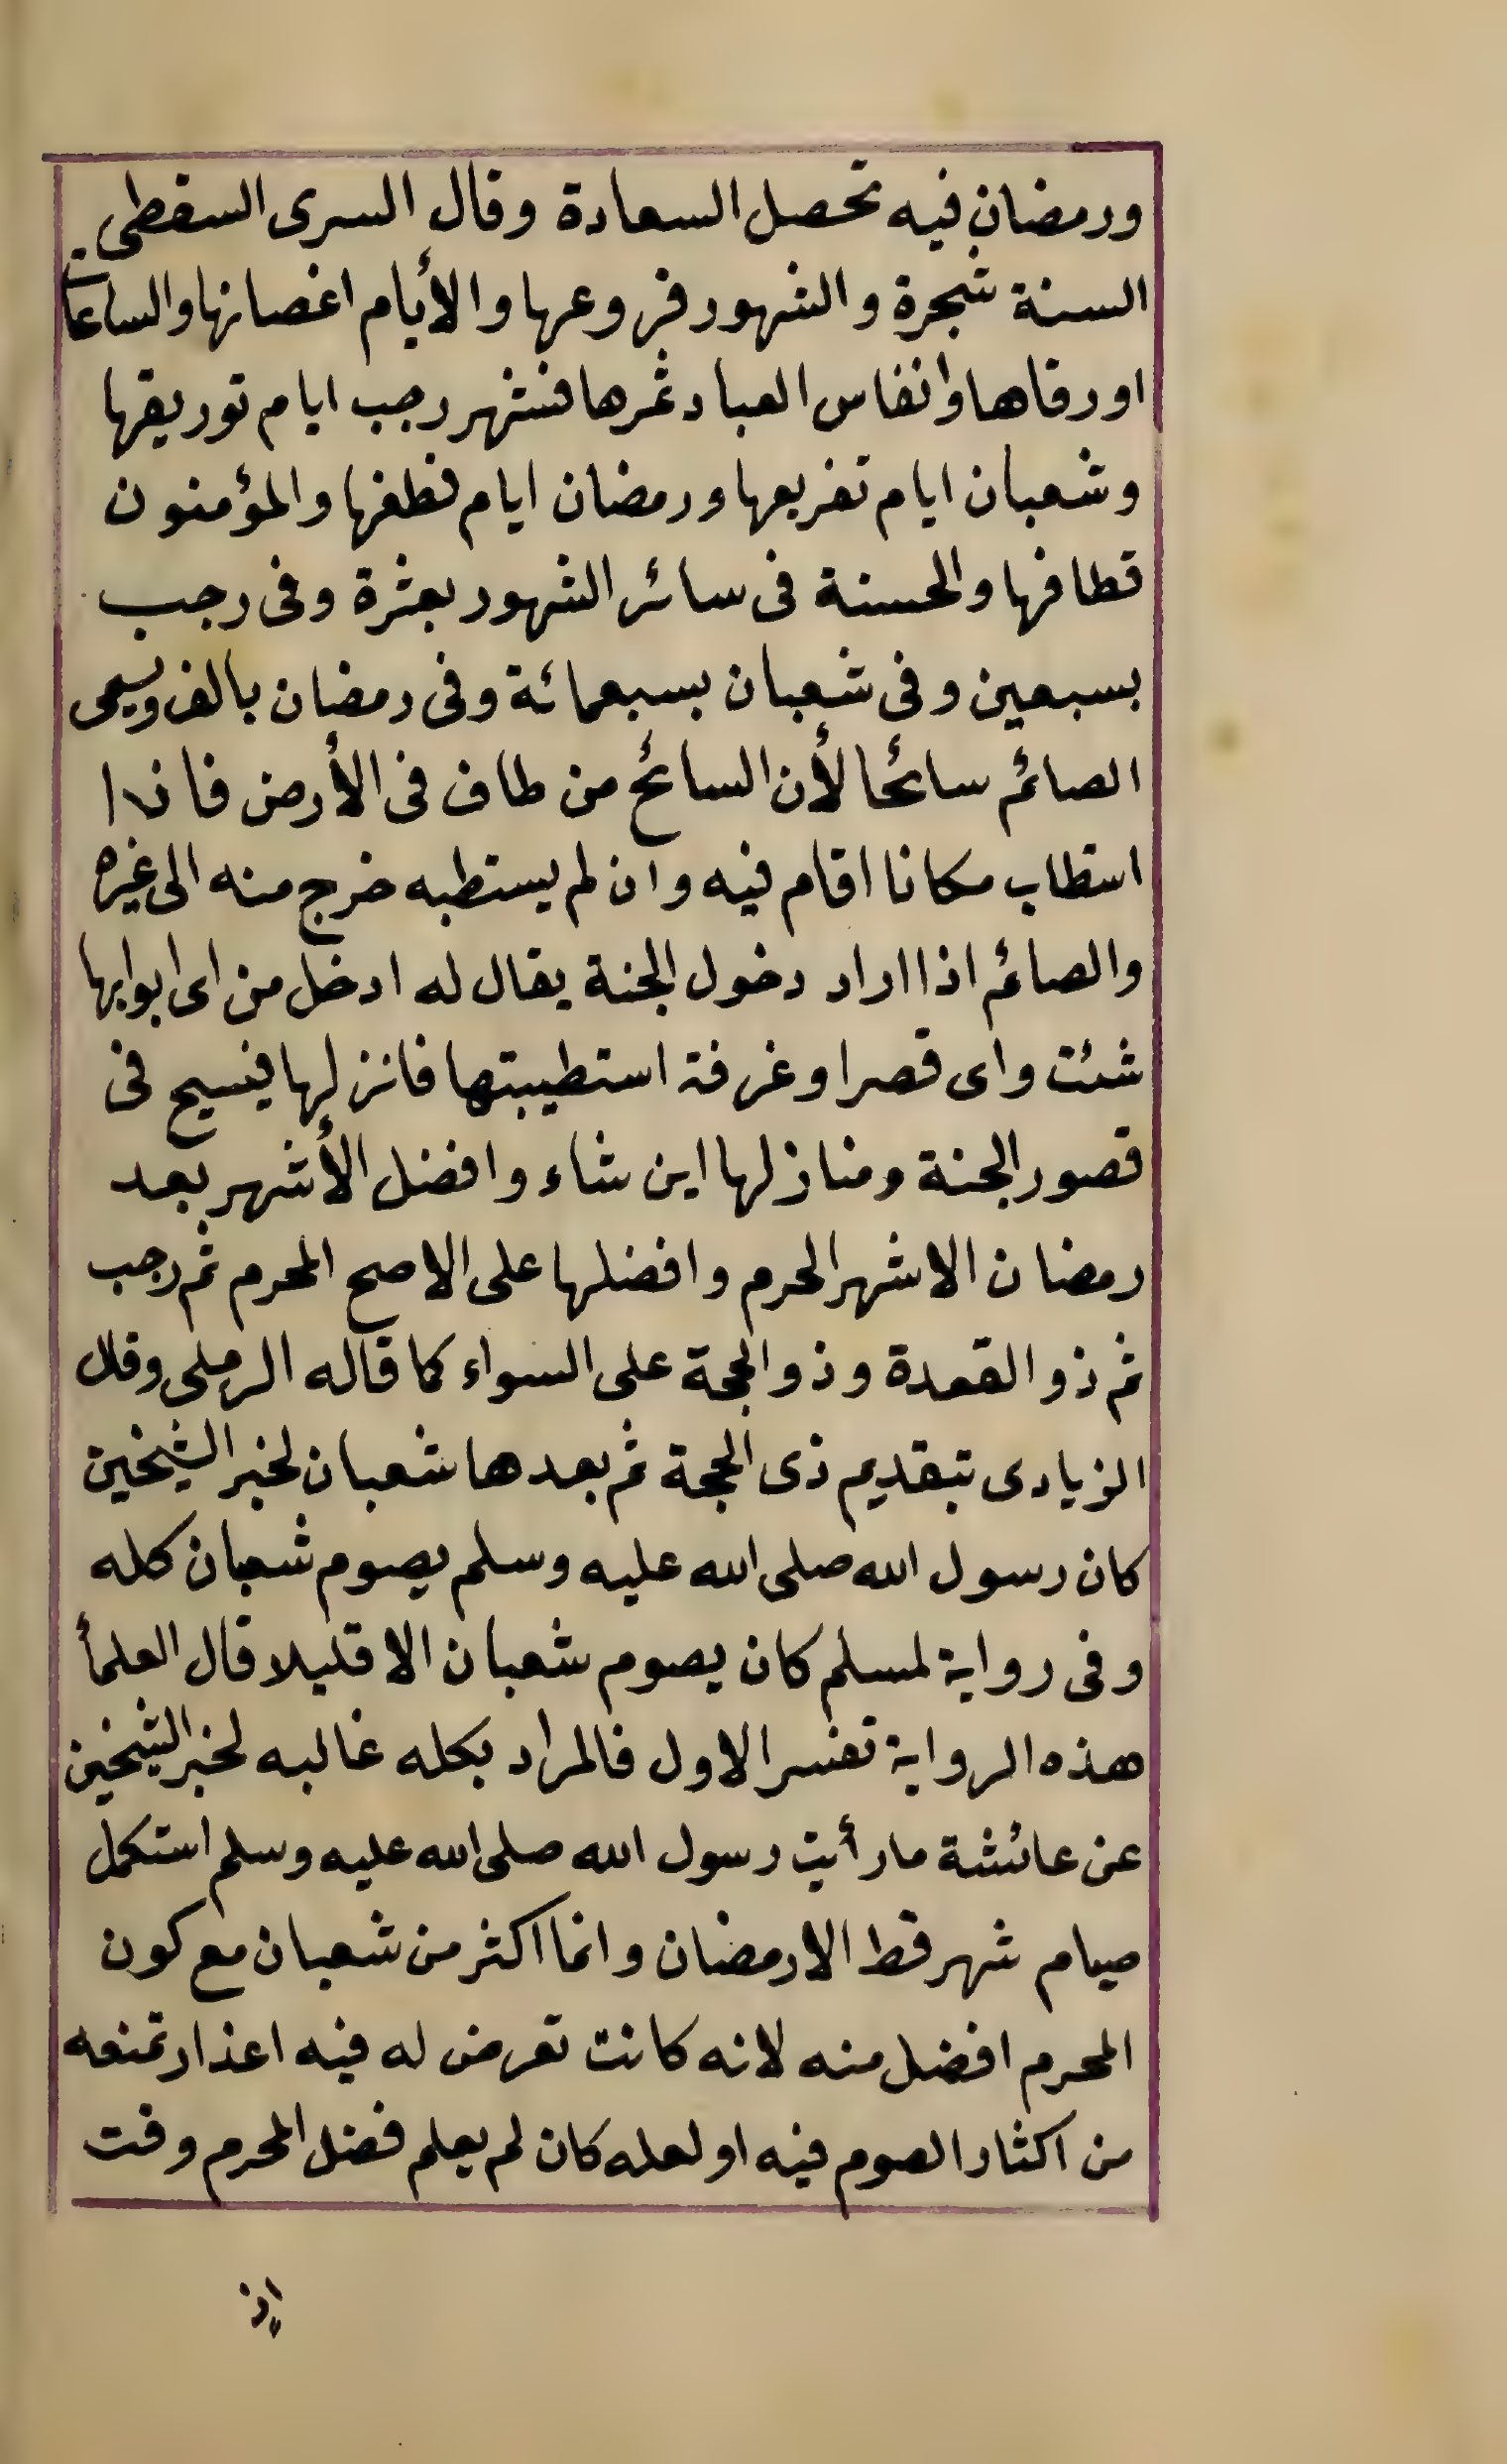 ورمضان فيه تحصل السعادة وقال السرى السقطى
السنة شجرة والشهور فروعها والأيام اغصانها والساعات
اورقاها وانفاس العباد ثمرها فشهر رجب ايام توريقها
وشعبان ايام تفريعها ورمضان ايام قطفها والمؤمنون
قطافها والحسنة فى سائر الشهور بعشرة وفى رجب
بسبعين وفى شعبان بسبعمائة وفى رمضان بالف ويسمى
الصائم سائحا لأن السائح من طاف فى الأرض فاذا
استطاب مكانا اقام فيه وان لم يستطبه خرج منه الى غيره
والصائم اذا اراد دخول الجنة يقال له ادخل من اى ابوابها
شئت واى قصر اوغرفة استطيبتها فانزلها فيسيح فى
قصور الجنة ومنازلها اين شاء وافضل الأشهر بعد
رمضان الاشهر الحرم وافضلها على الاصح المحرم ثم رجب
ثم ذو القعدة وذو الحجة على السواء كما قاله الرملى وقال
الزيادى بتقديم ذى الحجة ثم بعدها شعبان لخبر الشيخين
كان رسول الله صلى الله عليه وسلم يصوم شعبان كله
وفى رواية لمسلم كان يصوم شعبان الا قليلا قال العلمأ
هذه الرواية تفسر الاول فالمراد بكله غالبه لخبر الشيخين
عن عائشة مارأيت رسول الله صلى الله عليه وسلم استكمل
صيام شهر قط الا رمضان وانما اكثر من شعبان مع كون
المحرم افضل منه لانه كانت تعرض له فيه اعذار تمنعه
من اكثار الصوم فيه او لعله كان لم يعلم فضل المحرم وقت